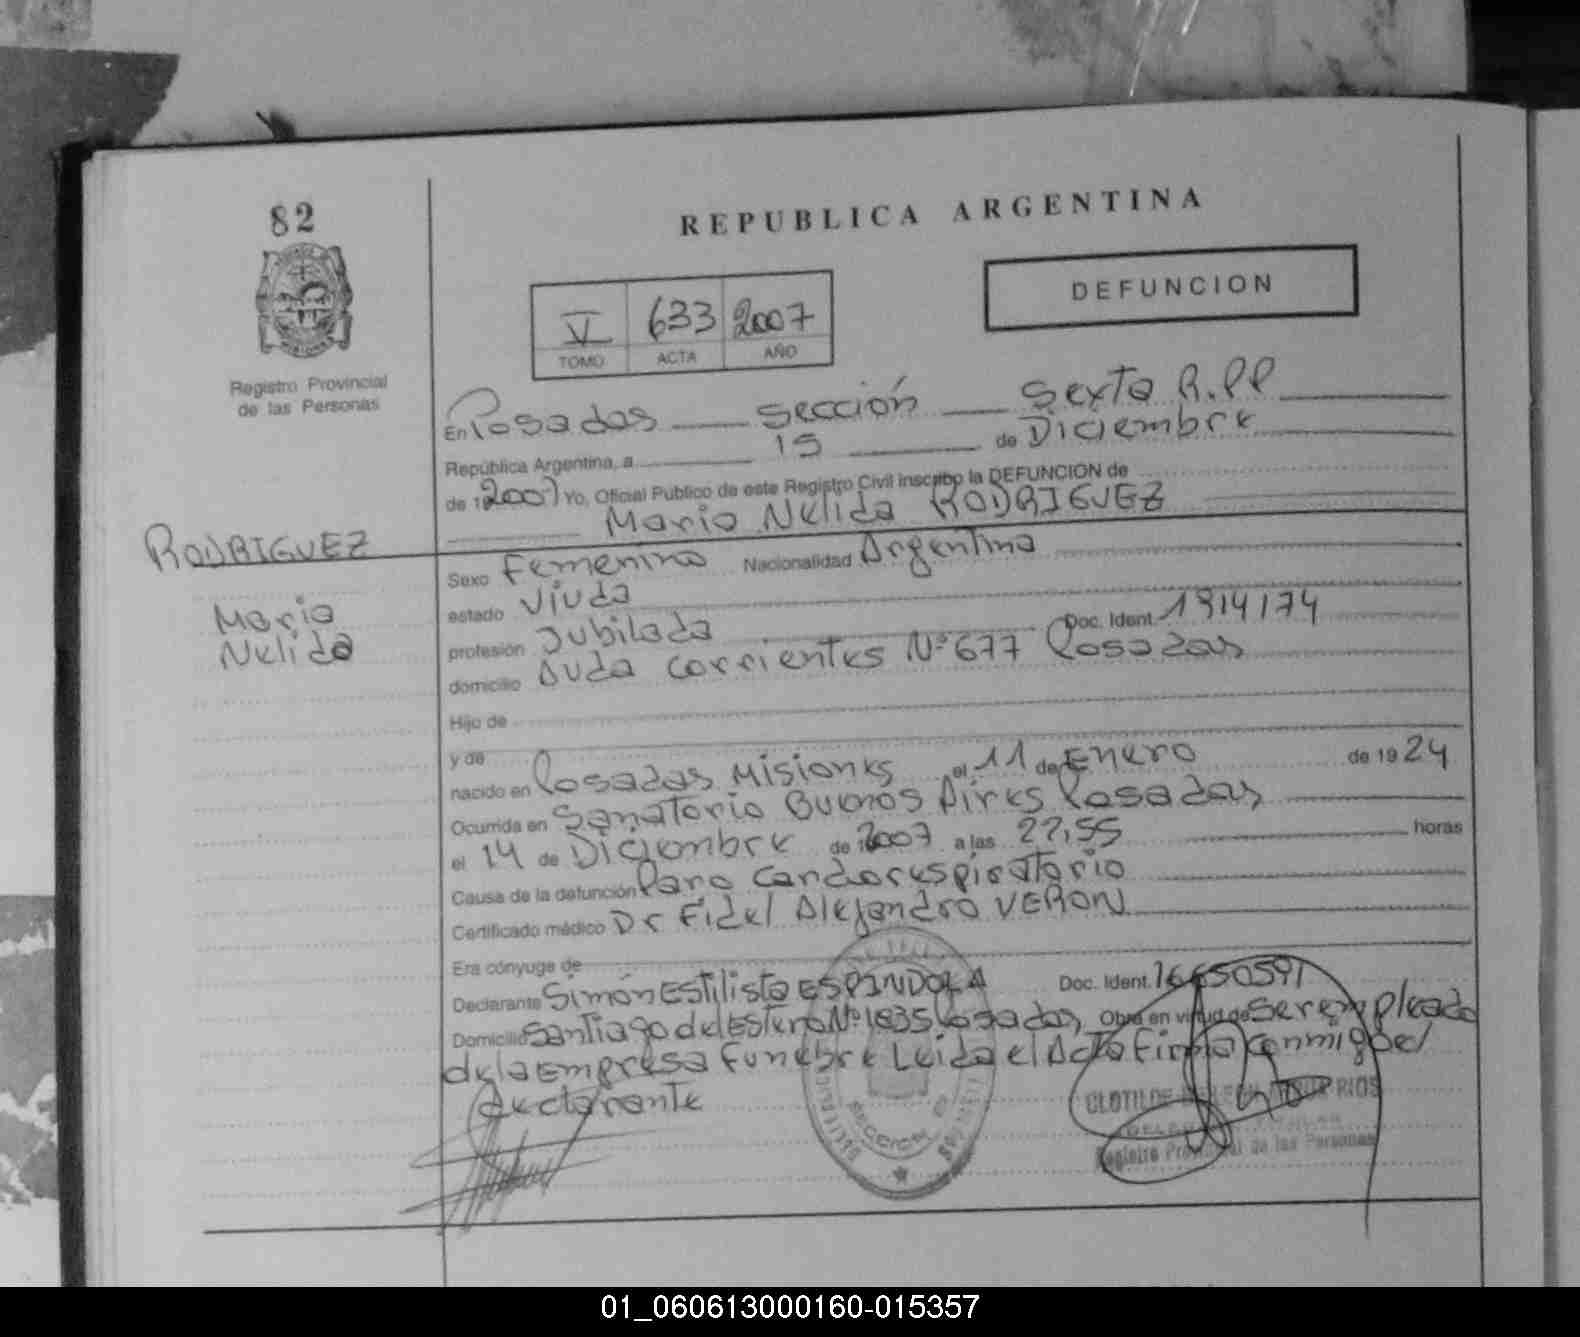 82
REPUBLICA ARGENTINA
DEFUNCION
V 633 2007
TOMO ACTA AÑO
Registro Provincial
de las Personas
En Posadas sección Sexta R.PP
República Argentina, a 15 de Diciembre
de 12007 Yo, Oficial Público de este Registro Civil inscribo la DEFUNCION de
Maria Nelida RODRIGUEZ
RODRIGUEZ
Maria
Nelida
Sexo Femenino Nacionalidad Argentina
estado Viuda
profesión Jubilada Doc. Ident. 1914174
domicilio Avda Corrientes Nº 677 Posadas
Hijo de
y de
nacido en Posadas Misiones el 11 de Enero de 1924
Ocurrida en Sanatorio Buenos Aires Posadas
el 14 de Diciembre de 2007 a las 22,55 horas
Causa de la defunción Paro Cardiorespiratorio
Certificado médico Dr Fidel Alejandro VERON
Era cónyuge de
Declarante Simón Estilista ESPINDOLA Doc. Ident. 16650591
Domicilio Santiago del Estero Nº 1835 Posadas Obra en virtud de ser empleado
de la Empresa Funebre Leida el Acta Firma Conmigo el
declarante
CLOTILDE RIOS
Registro Provincial de las Personas
01_060613000160-015357